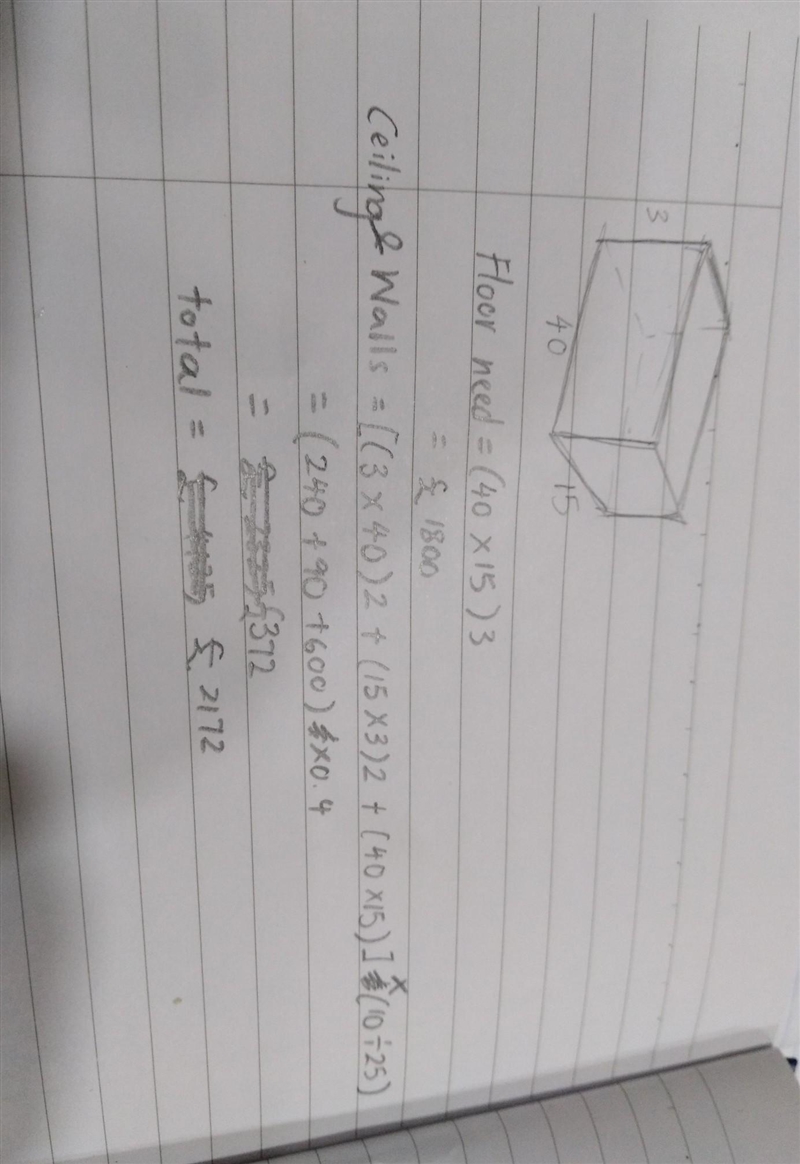 3
40
15
Floor need = (40 × 15) 3
= £ 1800
Ceiling & Walls = [(3 × 40) 2 + (15 × 3) 2 + (40 × 15)] × (10 ÷ 25)
= (240 + 90 + 600) × 0.4
= £372
total = £ 2172